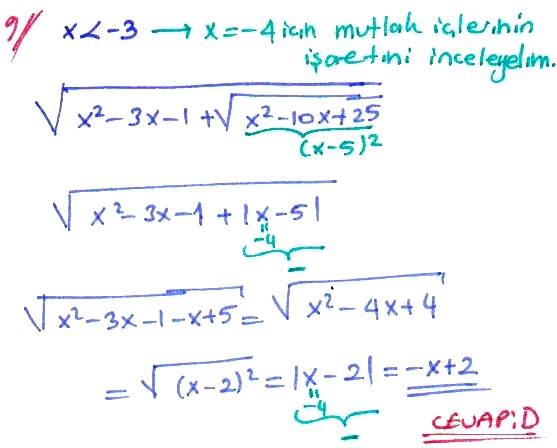 9/ x < -3 → x = -4 için mutlak içlerinin
işaretini inceleyelim.
√(x² - 3x - 1 + √(x² - 10x + 25))
(x-5)²
√(x² - 3x - 1 + |x - 5|)
-4
-
√(x² - 3x - 1 - x + 5) = √(x² - 4x + 4)
= √((x-2)²) = |x - 2| = -x + 2
-4
-
CEVAP: D